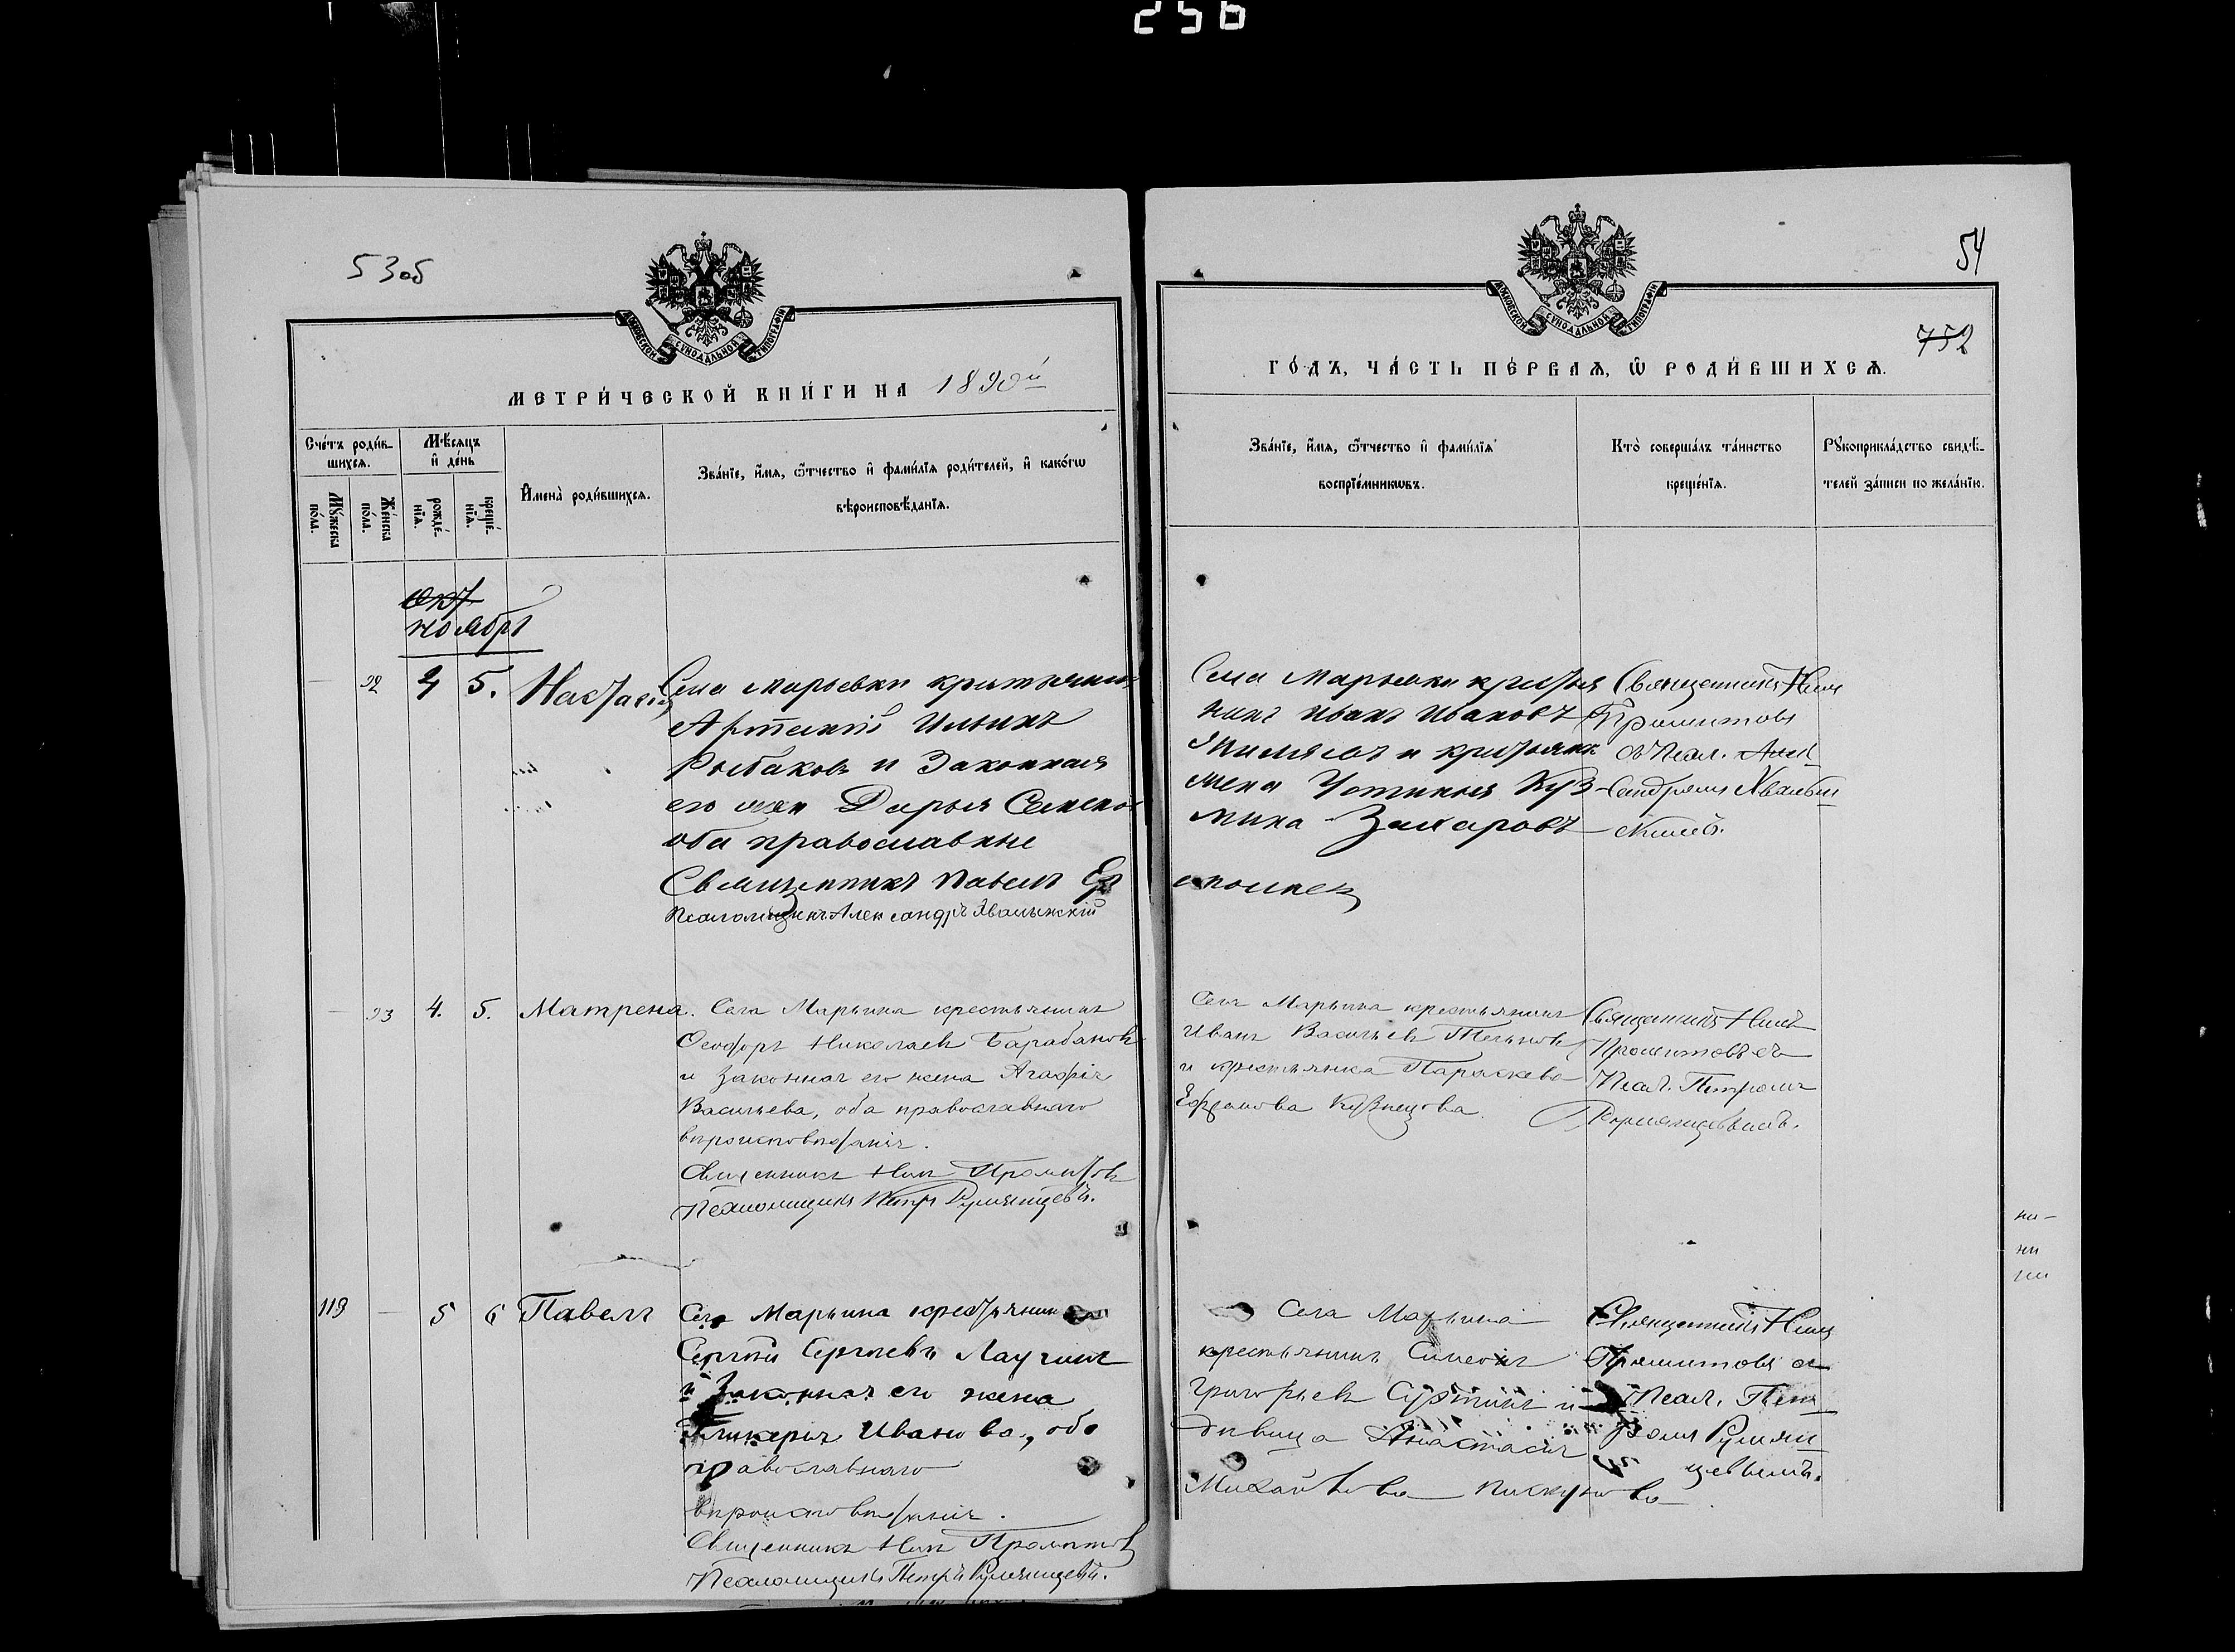 256
53об
МОСКОВСКОЙ СѴНОДАЛЬНОЙ ТИПОГРАФІИ
МЕТРИ́ЧЕСКОЙ КНИ́ГИ НА 1890й
Сче́тъ роди́в-
шихсѧ.
Мѣ́сѧцъ
и҆ де́нь
Мꙋ́жеска
по́ла.
Же́нска
по́ла.
рожде́-
нїѧ.
креще́-
нїѧ.
И҆мена̀ роди́вшихсѧ.
Зва́нїе, и҆́мѧ, ѻ҆́тчество и҆ фами́лїѧ роди́телей, и҆ како́гѡ
вѣроисповѣ́данїѧ.
окт
ноября
92 4 5. Настасія
Села Марьевки крестьянинъ
Ильинъ
Рыбаковъ и Законная
его жен Дарья
оба православные
Священникъ Павелъ
Псаломщикъ Александръ Хвалынскій
93 4. 5. Матрена. Села Марьина крестьянинъ
Ѳеодоръ Николаевъ Барабановъ
и законная его жена Агафія
Васильева, оба православнаго
вѣроисповѣданія.
Священникъ Ник Промптовъ
Псаломщикъ Петръ Румянцевъ.
119 5 6 Павелъ Села Марьина крестьянинъ
Сергѣй Сергѣевъ
и законная его жена
Гликерія Иванова, оба
православнаго
вѣроисповѣданія.
Священникъ Ник Промптовъ
Псаломщикъ Петръ Румянцевъ.
54
752
МОСКОВСКОЙ СѴНОДАЛЬНОЙ ТИПОГРАФІИ
ГО́ДЪ, ЧА́СТЬ ПЕ́РВАѦ, Ѡ҆ РОДИ́ВШИХСѦ.
Зва́нїе, и҆́мѧ, ѻ҆́тчество и҆ фами́лїѧ
воспрїе́мникѡвъ.
Кто̀ соверша́лъ та́инство
креще́нїѧ.
Рꙋкоприкла́дство свидѣ́-
телей за́писи по жела́нїю.
Села Марьевки крестья
нинъ Иванъ Ивановъ
и крестьянк
Устинья Куз
мина Захаровъ
Священникъ Ник
Промптовъ
съ Псал. Алек
сандромъ Хвалын
скимъ.
Села Марьина крестьянинъ
Иванъ Васильевъ
и крестьянка Параскева
Кузнецова.
Священникъ Ник
Промптовъ съ
Псал. Петромъ
Румянцевымъ.
Села Марьина
крестьянинъ Симеонъ
Григорьевъ и
дѣвица Анастасія
Михайлова Пискунова
Священникъ Ник
Промптовъ съ
Псал. Пет
ромъ Румян
цевымъ.